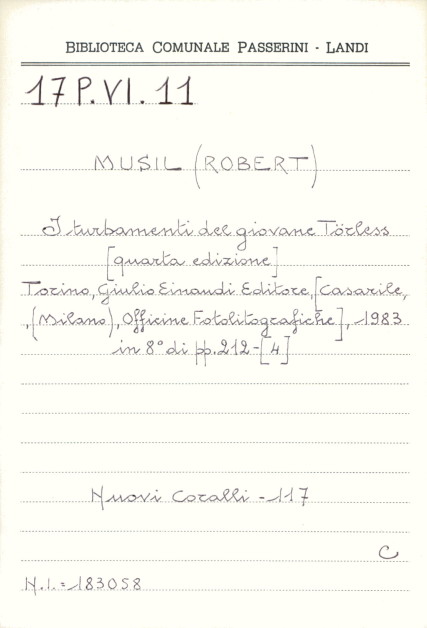 BIBLIOTECA COMUNALE PASSERINI - LANDI
17 P. VI. 11
MUSIL (ROBERT)
I turbamenti del giovane Törless
[quarta edizione]
Torino, Giulio Einaudi Editore, [Casarile,
, (Milano), Officine Fotolitografiche], 1983
in 8° di pp. 212-[4]
Nuovi Coralli - 117
C
N.I. = 183058